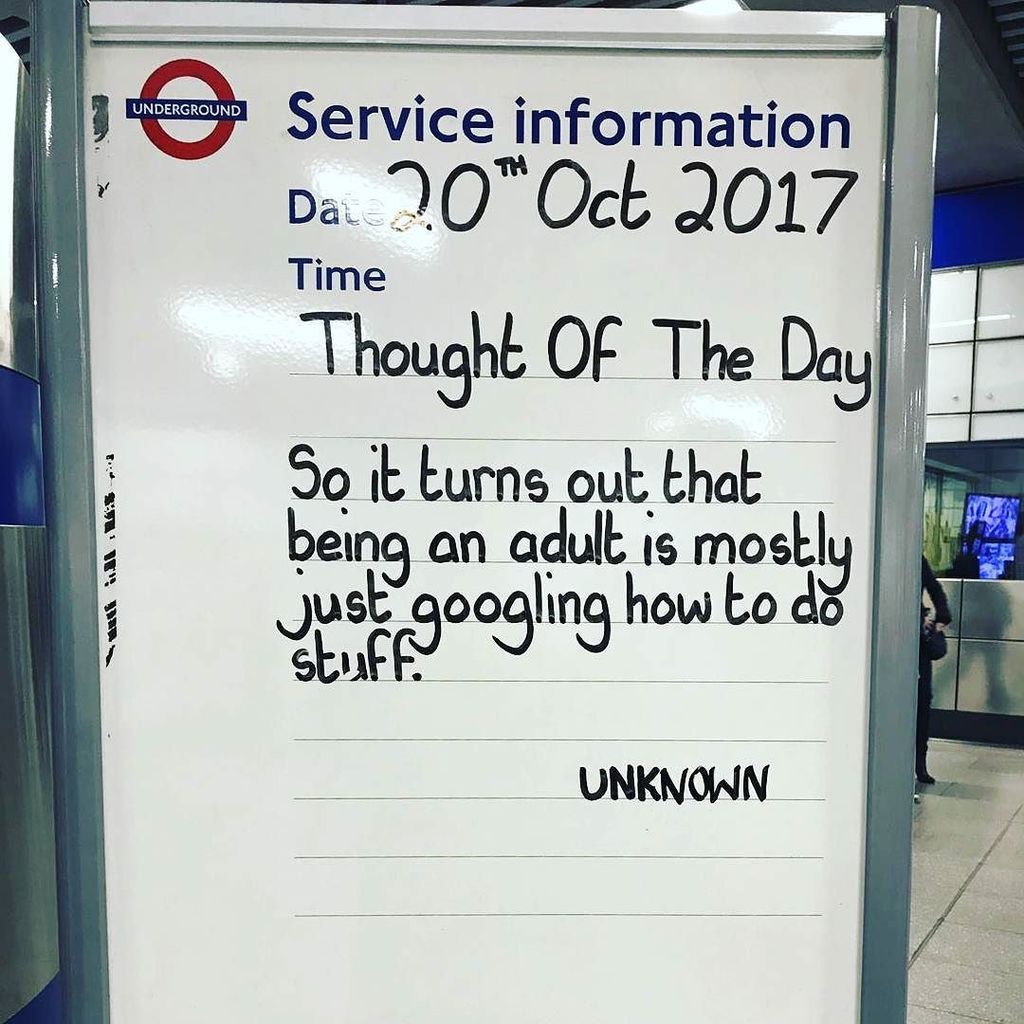 UNDERGROUND
Service information
Date 20TH Oct 2017
Time
Thought Of The Day
So it turns out that
being an adult is mostly
just googling how to do
stuff.
UNKNOWN